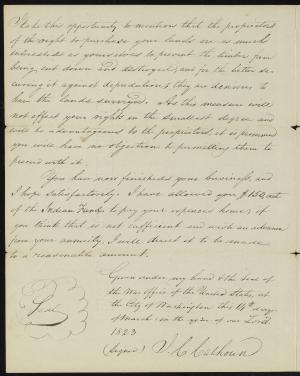 I take this opportunity to mention that the proprietors
of the right to purchase your lands are as much
interested as yourselves to prevent the timber from
being cut down and destroyed; and for the better se-
curing it against depredations, they are desirous to
have the lands surveyed. As this measure will
not affect your rights in the smallest degree and
will be advantageous to the proprietors, it is presumed
you will have no objection to permitting them to
proceed with it.
You have now finished your business, and
I hope satisfactorily. I have allowed you $150, out
of the Indian Fund, to pay your expenses home; if
you think that is not sufficient and wish an advance
from your annuity, I will direct it to be made
to a reasonable amount.
Given under my hand & the seal of
the War Office of the United States, at
the City of Washington this 14th day
of March in the year of our Lord
1823
Seal
(Signed) J. C. Calhoun